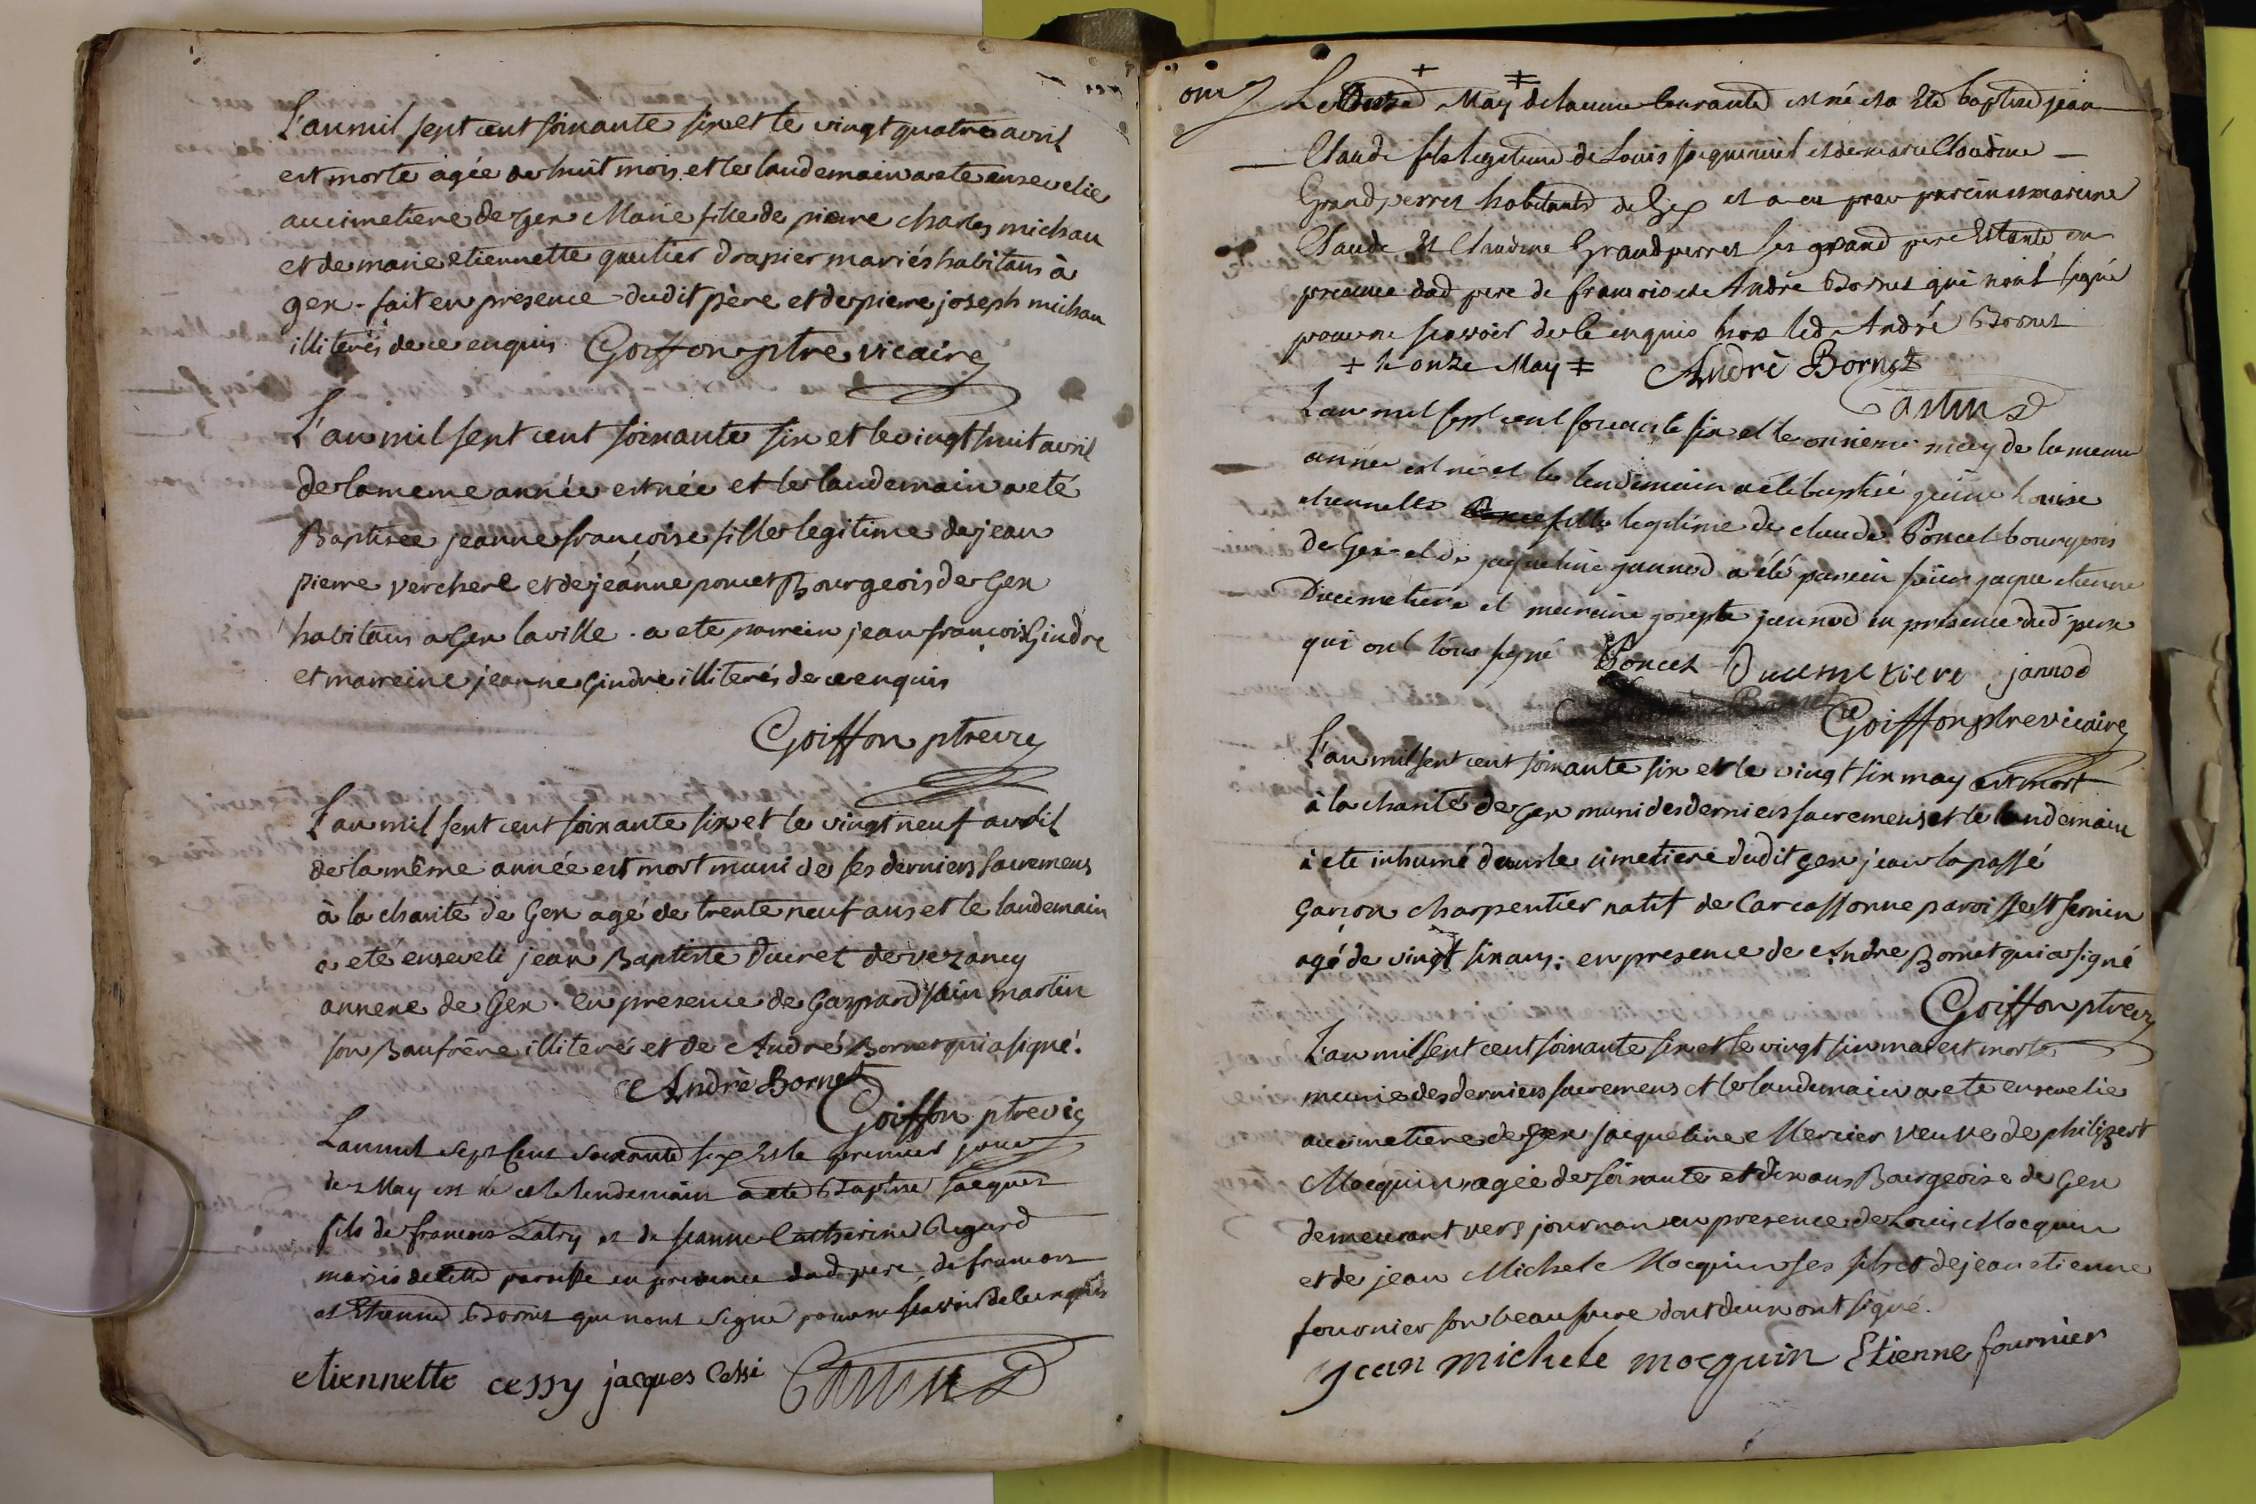 L'an mil sept cent soixante six et le vingt quatre avril
est morte agée de huit mois et le landemain a ete ensevelie
au cimetiere de Gex Marie fille de pierre charles michau
et de marie etiennette gautier drapier mariés habitans à
gex. fait en presence dudit père et de pierre joseph michau
illiterés de ce enquis Goiffon ptre vicaire
L'an mil sept cent soixante six et le vingt huit avril
de la meme année est née et le landemain a eté
Baptisée jeanne françoise fille legitime de jean
pierre verchere et de jeanne poncet Bourgeois de Gex
habitans a Gex la ville. a ete parrein jean françois Gindre
et marreine jeanne Gindre illiterés de ce enquis
Goiffon ptre vic
L'an mil sept cent soixante six et le vingt neuf avril
de la même année est mort muni de ses derniers sacremens
à la charité de Gex agé de trente neuf ans et le landemain
a eté enseveli jean Baptiste Duiret de vezancy
annexe de Gex. en presence de Gaspard martin
son Baufrère illiteré et de André Bornet qui a signé.
André Bornet
Goiffon ptre vic
L'an mil sept cent soixante six et le premier jour
de May est né et le lendemain a eté Baptisé jacques
fils de francois Latry et de jeanne Catherine
mariés de cette paroisse en presence dud pere, de francois
et Etienne Bornet qui n'ont signé pour ne scavoir de ce enquis
etiennette cessy jacques Cessi Castin
onz Le May de l'année courante est né et a eté baptisé jean
Claude fils legitime de Louis et de marie Claudine
Grandperret habitants de Gex et a eu pour parein et mareine
Claude et Claudine Grandperret ses grand pere et tante en
presence dud pere de francois et André Bornet qui n'ont signé
pour ne scavoir de ce enquis hors led André Bornet
+ le onze May ‡ André Bornet
Castin
L'an mil sept cent soixante six et le onzieme may de la meme
année est né et le lendemain a été baptisé jeanne Louise
etiennette fille legitime de claude Poncet bourgeois
de Gex et de jaqueline jannod a été parein sieur jaque etienne
Ducimetiere et mareine josepte jannod en presence dud pere
qui ont tous signé Poncet Ducimetiere jannod
Goiffon ptre vicaire
L'an mil sept cent soixante six et le vingt six may est mort
à la charité de Gex muni des derniers sacremens et le landemain
à ete inhumé dans le cimetiere dudit gex jean lapassé
garcon charpentier natif de Carcassonne paroisse st sernin
agé de vingt six ans: en presence de Andre Bornet qui a signé
Goiffon ptre vic
L'an mil sept cent soixante six et le vingt six mai est morte
munie des derniers sacremens et le landemain a ete ensevelie
au cimetiere de Gex jacqueline Mercier veuve de philipert
Mocquin agée de soixante et dix ans Bourgeoise de Gex
demeurant vers journan en presence de Louis Mocquin
et de jean Michele Mocquin ses fils et de jean etienne
fournier son beaufrere dont deux ont signé.
jean michele mocquin Etienne fournier